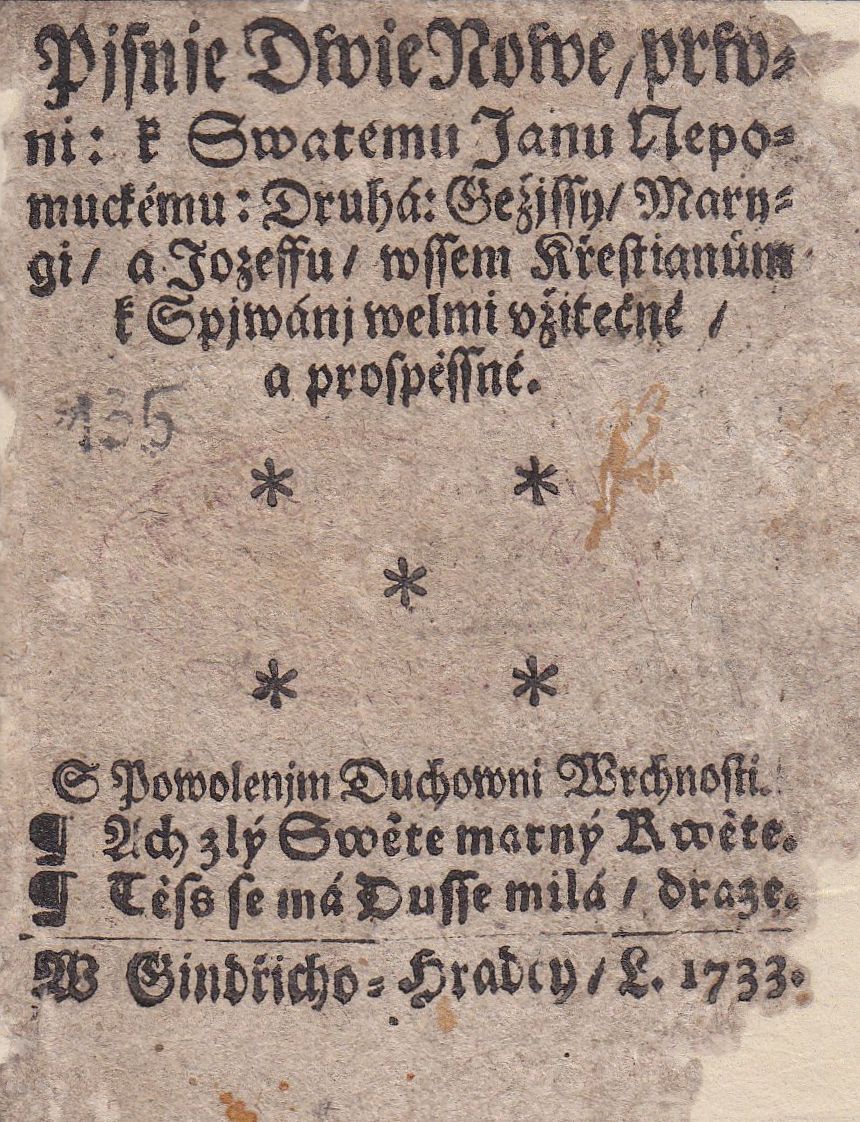 Pjsnie Dwie Nowe, prw-
ni: k Swatemu Janu Nepo-
muckému: Druhá: Gežjssy/ Mary-
gi/ a Jozeffu/ wssem Křestianům
k Spjwánj welmi vžitečné /
a prospěssné.
135
* *
*
* *
S Powolenjm Duchowni Wrchnosti.
¶ Ach zlý Swěte marný Kwěte.
¶ Těss se má Dusse milá / draze.
W Gindřicho-Hradcy / L. 1733.